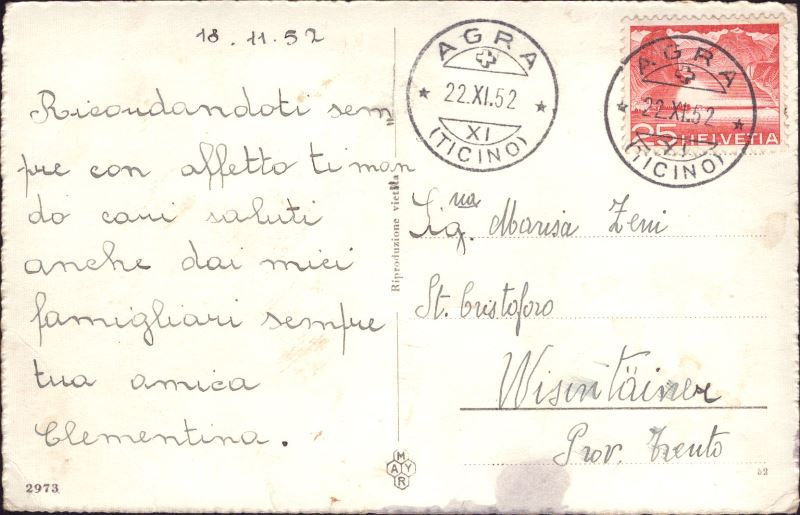 18.11.52
Ricordandoti sem
pre con affetto ti man
do cari saluti
anche dai miei
famigliari sempre
tua amica
Clementina.
2973
Riproduzione vietata
MAYR
AGRA
22.XI.52
XI
(TICINO)
AGRA
22.XI.52
XI
(TICINO)
25 HELVETIA
Sig.na Marisa Zeni
St. Cristoforo
Wisintäiner
Prov. Trento
52